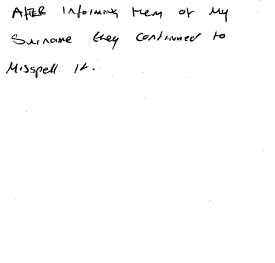 AFTER Informing them of my
Surname they continued to
Misspell it.